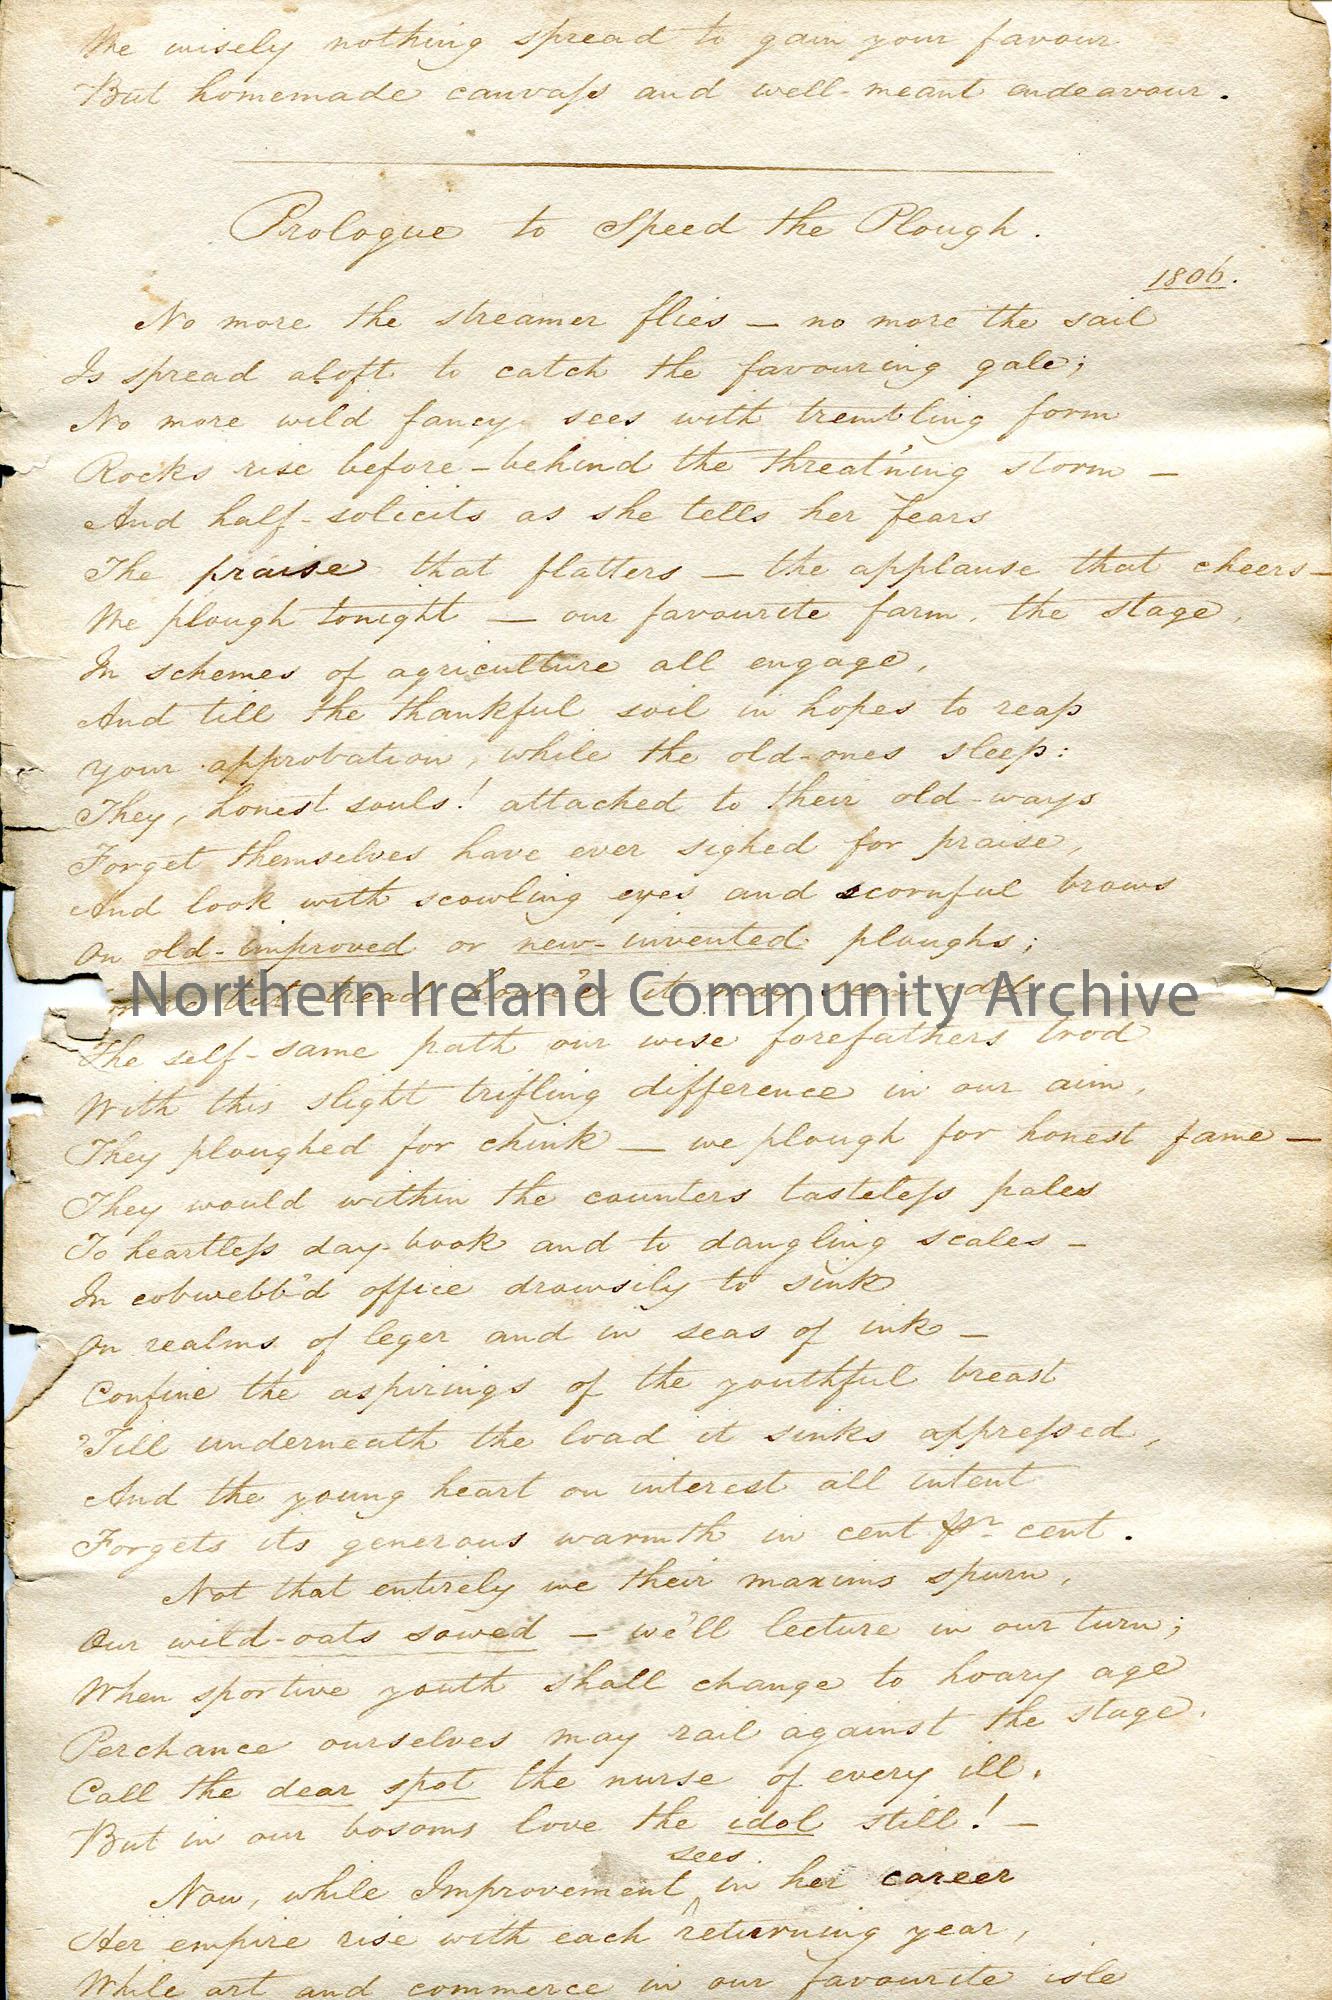 We wisely nothing spread to gain your favour
But homemade canvass and well-meant endeavour.
Prologue to Speed the Plough.
1806.
No more the streamer flies — no more the sail
Is spread aloft to catch the favouring gale;
No more wild fancy sees with trembling form
Rocks rise before - behind the threat'ning storm —
And half-solicits as she tells her fears
The praise that flatters — the applause that cheers —
We plough tonight — our favourite farm, the stage,
In schemes of agriculture all engage,
And till the thankful soil in hopes to reap
Your approbation, while the old-ones sleep:
They, honest souls! attached to their old-ways
Forget themselves have ever sighed for praise,
And look with scowling eyes and scornful brows
On old-improved or new-invented ploughs;
but tread howe'er it may seem odd
Northern Ireland Community Archive
The self-same path our wise forefathers trod
With this slight trifling difference in our aim,
They ploughed for chink — we plough for honest fame —
They would within the counters tasteless pales
To heartless day-book and to dangling scales —
In cobwebb'd office drowsily to sink
On realms of leger and in seas of ink —
Confine the aspirings of the youthful breast
'Till underneath the load it sinks oppressed,
And the young heart on interest all intent
Forgets its generous warmth in cent pr cent.
Not that entirely we their maxims spurn,
Our wild-oats sowed — we'll lecture in our turn;
When sportive youth shall change to hoary age
Perchance ourselves may rail against the stage,
Call the dear spot the nurse of every ill,
But in our bosoms love the idol still! —
sees
Now, while Improvement ^ in her career
Her empire rise with each returning year,
While art and commerce in our favourite isle